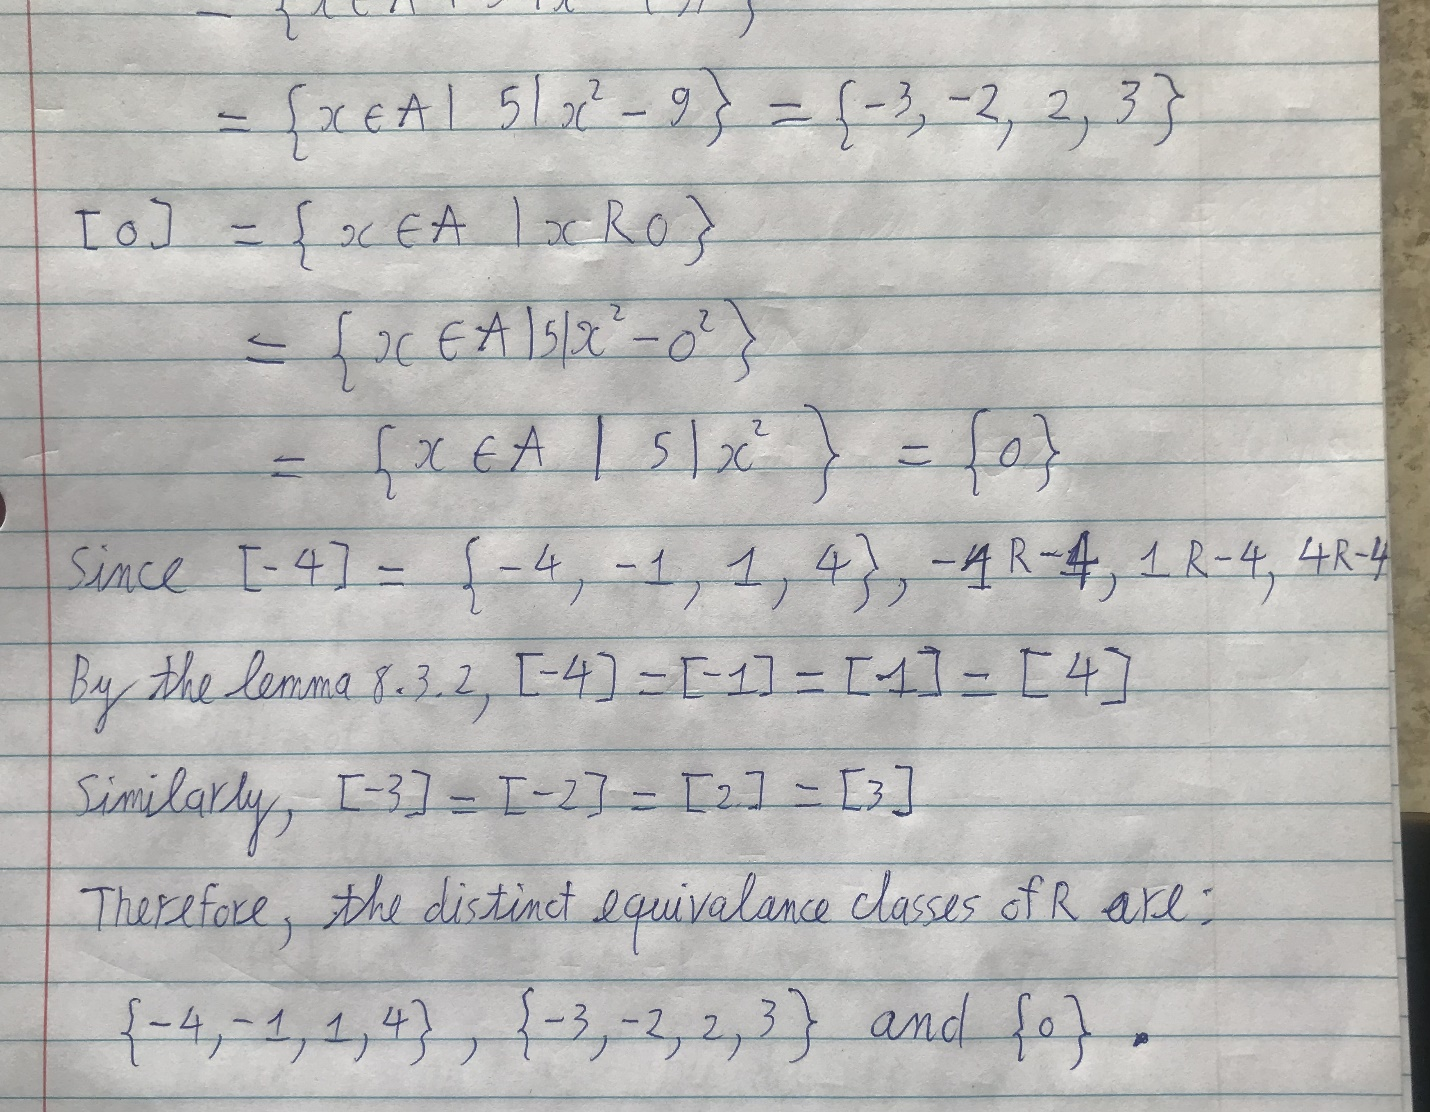 = {x ∈ A | 5 | x² - 9} = {-3, -2, 2, 3}
[0] = {x ∈ A | x R 0}
= {x ∈ A | 5 | x² - 0²}
= {x ∈ A | 5 | x²} = {0}
Since [-4] = {-4, -1, 1, 4}, -1 R -4, 1 R -4, 4 R -4
By the lemma 8.3.2, [-4] = [-1] = [1] = [4]
Similarly, [-3] = [-2] = [2] = [3]
Therefore, the distinct equivalance classes of R are:
{-4, -1, 1, 4}, {-3, -2, 2, 3} and {0}.